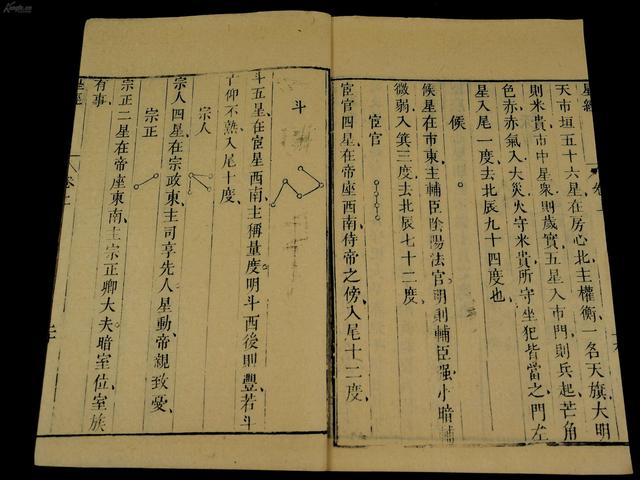 星經
天市垣五十六星在房心北主權衡一名天旗大明
則米貴市中星衆則歲實五星入市門則兵起芒角
色赤赤氣入大災火守米貴所守坐犯皆當之門左
星入尾一度去北辰九十四度也
候
候星在市東主輔臣陰陽法官明則輔臣强小暗輔
微弱入箕三度、去北辰七十二度
宦官
宦官四星在帝座西南、侍帝之傍、入尾十二度、
斗
斗五星在宦星西南、主稱量度、明斗西後則豐、若斗
仰不熟、入尾十度、
宗人
宗人四星在宗政東、主司享先人、星動、帝親致憂、
宗正
宗正二星在帝座東南、主宗正卿大夫、暗室位、室族
有事、
星經 卷上